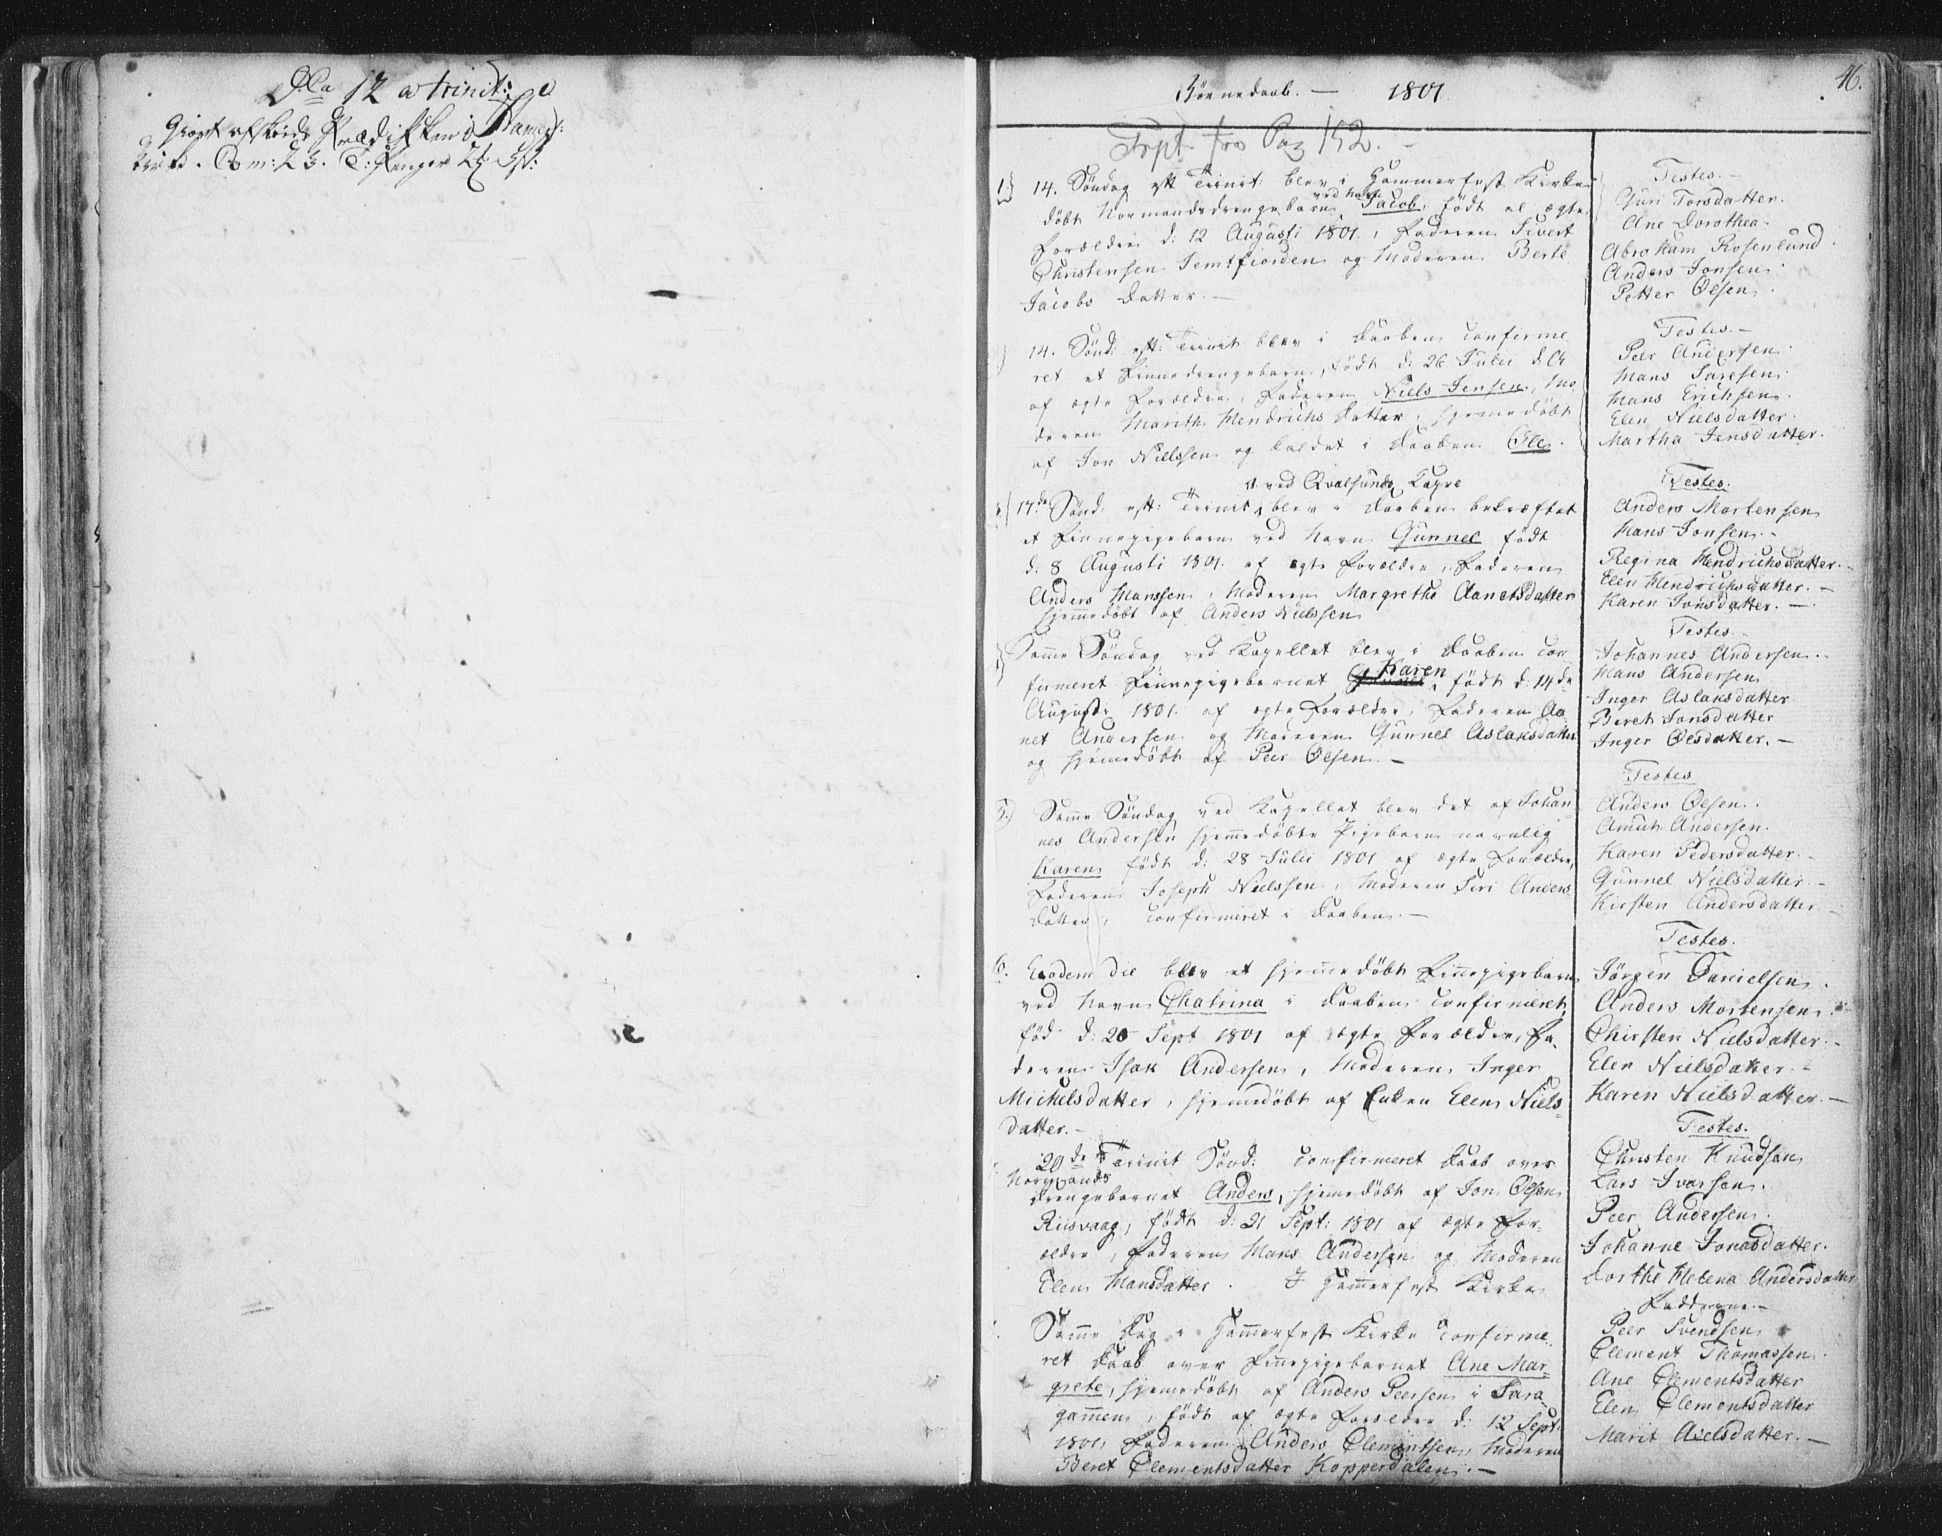 12 a trinit:
46.
Børnedaab. — 1801.
Frpt. fra Pag 152.
1) 14. Søndag eft Trinit: blev i Hammerfest Kirke
døbt Normandsdrengebarn ved Navn Jacob, født af ægte
Forældre d: 12 Augusti 1801, Faderen Sivert
Christensen Jemtfiorden og Moderen Berte
Jacobs Datter. —
Testes. —
Guri Torsdatter.
Ane Dorothea.
Abraham Rosenlund.
Anders Jonsen.
Petter Olsen.
14. Sønd: eft: Trinit blev i Daaben confirme
ret et Finnedrengebarn, født d: 26 Julii d. A
af ægte Forældre, Faderen Niels Jensen, Mo
deren Marith Hendrichs Datter, hjemmedøbt
af Jon Nielssen og kaldet i Daaben Ole.
Testes. —
Peer Andersen.
Hans Larsen.
Hans Erichsen.
Elen Nielsdatter.
Martha Jensdatter.
ved Qvalsunds Capel
17de Sønd: eft: Trinit, blev i Daaben bekræftet
et Finnepigebarn ved Navn Gunnel født
d: 8 Augusti 1801. af ægte Forældre, Faderen
Anders Hanssen, Moderen Margrethe Aanetsdatter
hjemmedøbt af Anders Nielssen
Testes.
Anders Mortensen
Hans Jonsen. -
Regina Hendrichsdatter. -
Elen Hendrichsdatter. -
Karen Jonsdatter. —
Samme Søndag ved Capellet blev i Daaben con
firmeret Finnepigebarnet Karen, født d: 14de
Augusti 1801. af ægte Forældre, Faderen Aa-
net Andersen og Moderen Gunnel Aslaksdatter
og hjemmedøbt af Peer Olsen. —
Testes.
Johannes Andersen.
Hans Andersen
Inger Aslaksdatter
Beret Jonsdatter
Inger Olsdatter. —
5) Samme Søndag ved Capellet blev det af Johan
nes Andersen hjemmedøbte Pigebarn navnlig
Karen, født d: 28 Julii 1801 af ægte Forældre,
Faderen Joseph Nielssen, Moderen Siri Anders
Datter, confirmeret i Daaben. —
Testes
Anders Olsen.
Amut Andersen.
Karen Pedersdatter.
Gunnel Nielsdatter. -
Kirsten Andersdatter. -
6. Eodem die blev et hjemmedøbt Finnepigebarn
ved Navn Chatrina i Daaben confirmeret,
fød d: 20 Sept 1801 af ægte Forældre, Fa
deren Isak Andersen, Moderen Inger
Michelsdatter, hjemmedøbt af Enken Elen Niels-
datter. -
Testes.
Jørgen Danielsen.
Anders Mortensen.
Chirsten Nielsdatter. -
Elen Nielsdatter. -
Karen Nielsdatter. —
20de Trinit Sønd: confirmeret Daab over
Normands
Drengebarnet Anders, hjemmedøbt af Jon Olsen
Riisvaag, født d: 21 Sept: 1801 af ægte For-
ældre, Faderen Hans Andersen og Moderen
Elen Hansdatter. I Hammerfest Kirke
Testes.
Christen Knudsen
Lars Ivarsen.
Peer Andersen.
Johanne Jonasdatter.
Dorthe Helena Andersdatter
Samme Dag i Hammerfest Kirke confirme-
ret Daab over Finnepigebarnet Ane Mar-
grete, hjemmedøbt af Anders Peersen i Sara
gammen, født af ægte Forældre d: 12 Sept:
1801, Faderen Anders Clementsen, Moderen
Beret Clementsdatter Kopperdalen. —
Fadderne. -
Peer Svendsen
Clement Thomassen.
Ane Clementsdatter
Elen Clementsdatter
Marit Nielsdatter. —